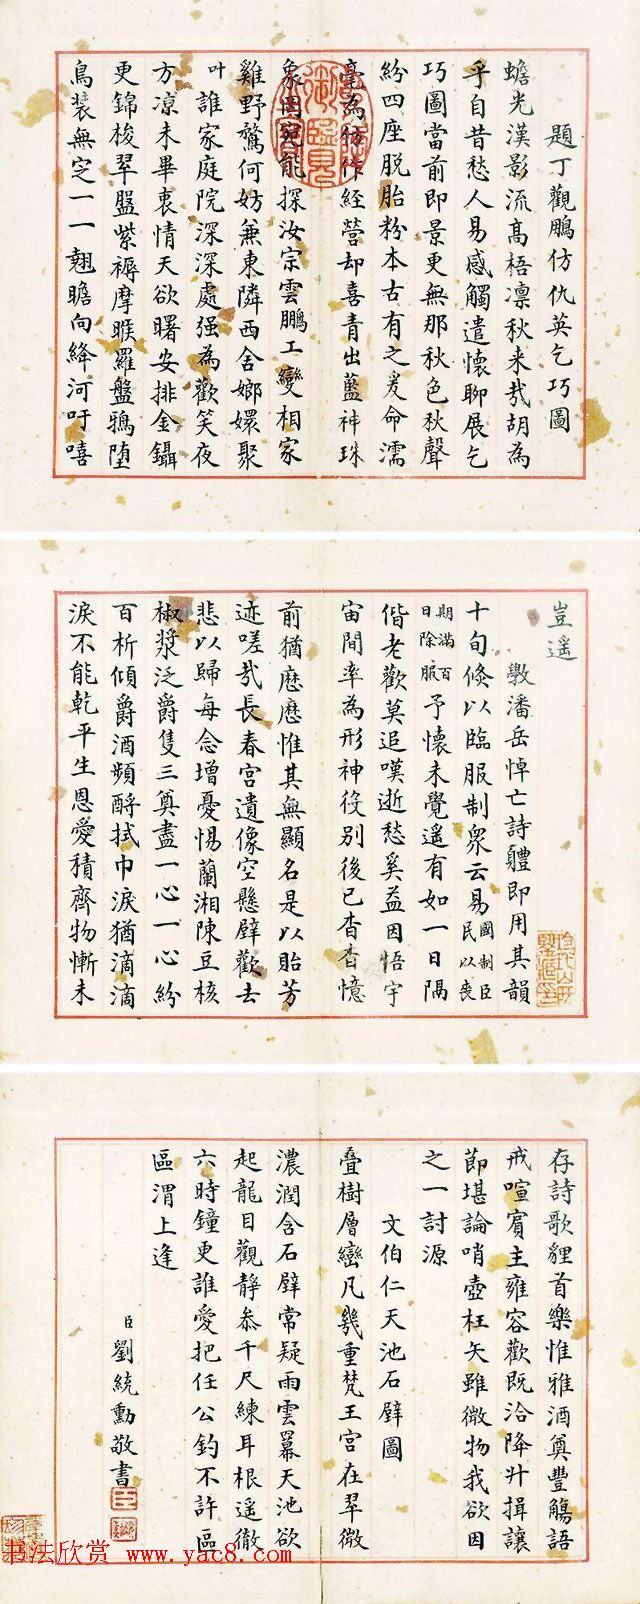 題丁觀鵬仿仇英乞巧圖
蟾光漢影流高梧凛秋来哉胡為
乎自昔愁人易感觸遣懷聊展乞
巧圖當前即景更無那秋色秋聲
紛四座脱胎粉本古有之爰命濡
毫為仿作経營却喜青出藍神珠
象罔宛能探汝宗雲鵬工變相家
雞野鶩何妨兼東隣西舍嫏嬛聚
叶誰家庭院深深處强為歡笑夜
方凉未畢衷情天欲曙安排金鑷
更錦梭翠盤紫褥摩睺羅盤鴉堕
鳥装無定一一翹瞻向絳河吁嘻
豈遥
斅潘岳悼亡詩軆即用其韻
十旬倏以臨服制衆云易國制臣民以喪
期滿百日除服予懷未覺遥有如一日隔
偕老歡莫追嘆逝愁奚益因悟宇
宙間率為形神役别後已杳杳憶
前猶歴歴惟其無顯名是以貽芳
迹嗟哉長春宮遺像空懸壁歡去
悲以歸每念增憂惕蘭湘陳豆核
椒漿泛爵隻三奠盡一心一心紛
百析傾爵酒頻酹拭巾淚猶滴滴
淚不能乾平生恩愛積齊物慚未
存詩歌貍首樂惟雅酒奠豐觴語
戒喧賓主雍容歡既洽降升揖讓
節堪論哨壺枉矢雖微物我欲因
之一討源
文伯仁天池石壁圖
叠樹層巒凡幾重梵王宮在翠微
濃潤含石壁常疑雨雲羃天池欲
起龍目觀靜叅千尺練耳根遥徹
六時鐘更誰愛把任公釣不許區
區渭上逢
臣劉統勳敬書
书法欣赏 www.yac8.com